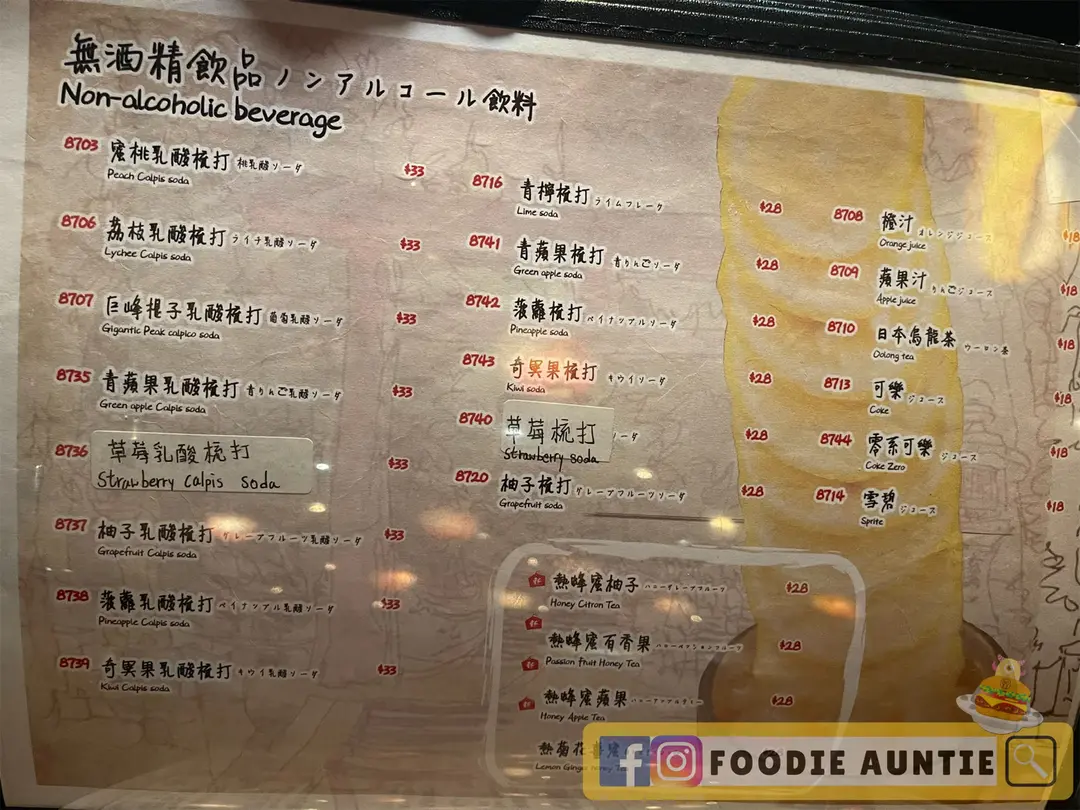 無酒精飲品 ノンアルコール飲料
Non-alcoholic beverage
8703 蜜桃乳酸梳打 桃乳酸ソーダ $33
Peach Calpis soda
8706 荔枝乳酸梳打 ライチ乳酸ソーダ $33
Lychee Calpis soda
8707 巨峰提子乳酸梳打 葡萄乳酸ソーダ $33
Gigantic Peak calpico soda
8735 青蘋果乳酸梳打 青りんご乳酸ソーダ $33
Green apple Calpis soda
8736 草莓乳酸梳打 $33
Strawberry Calpis soda
8737 柚子乳酸梳打 グレープフルーツ乳酸ソーダ $33
Grapefruit Calpis soda
8738 菠蘿乳酸梳打 ペイナップル乳酸ソーダ $33
Pineapple Calpis soda
8739 奇異果乳酸梳打 キウイ乳酸ソーダ $33
Kiwi Calpis soda
8716 青檸梳打 ライムフレーク $28
Lime soda
8741 青蘋果梳打 青りんごソーダ $28
Green apple soda
8742 菠蘿梳打 ペイナップルソーダ $28
Pineapple soda
8743 奇異果梳打 キウイソーダ $28
Kiwi soda
8740 草莓梳打 ーダ $28
Strawberry soda
8720 柚子梳打 グレープフルーツソーダ $28
Grapefruit soda
杯 熱蜂蜜柚子 ハニーグレープフルーツ $28
Honey Citron Tea
杯 熱蜂蜜百香果 $28
杯 Passion Fruit Honey Tea
熱蜂蜜蘋果 $28
Honey Apple Tea
Lemon Ginger Honey Tea
8708 橙汁 オレンジジュース $18
Orange juice
8709 蘋果汁 りんごジュース $18
Apple juice
8710 日本烏龍茶 ウーロン茶 $18
Oolong tea
8713 可樂 ジュース $18
Coke
8744 零系可樂 ジュース $18
Coke Zero
8714 雪碧 ジュース $18
Sprite
FOODIE AUNTIE